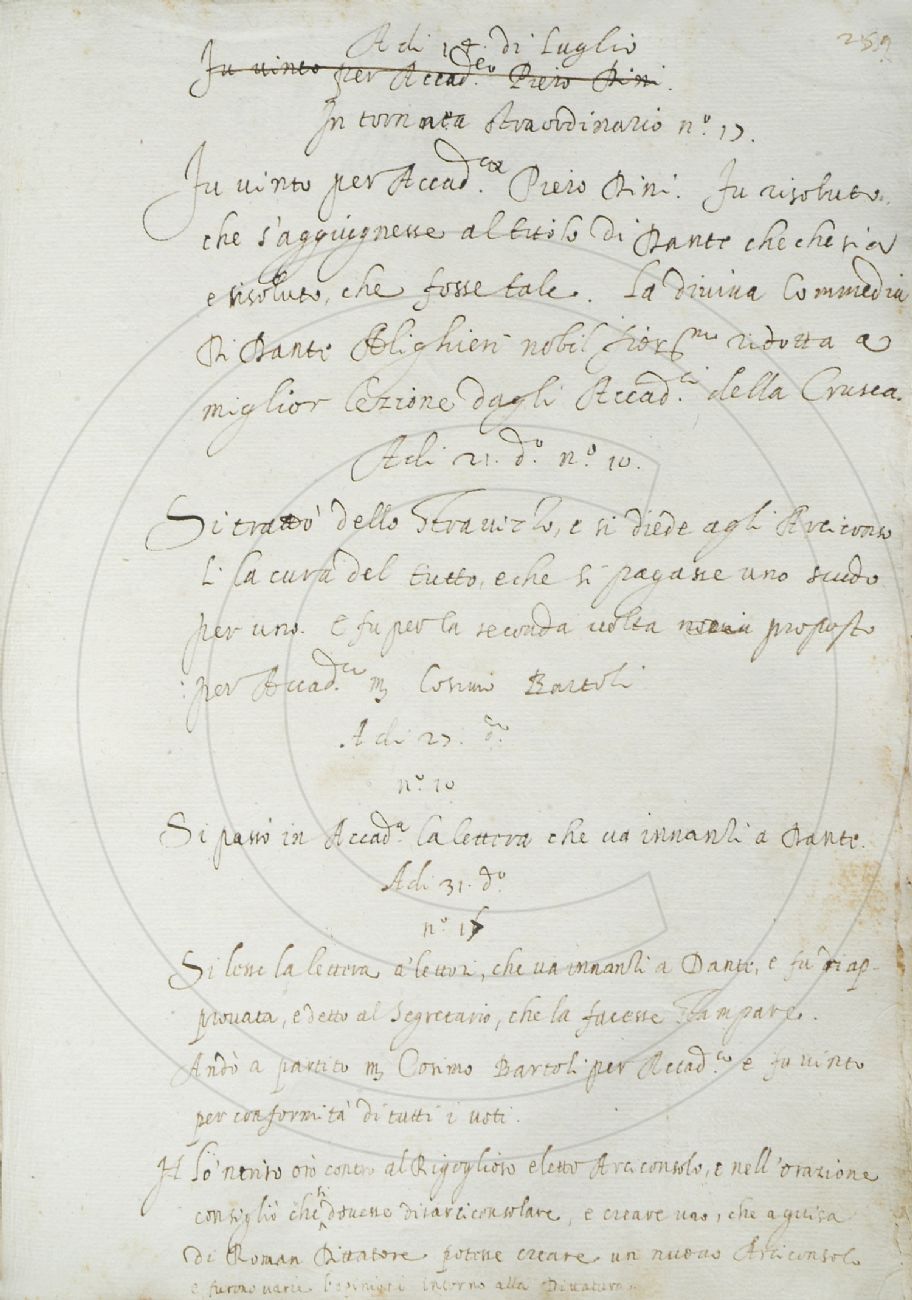 259
Adi 14. di Luglio
Fu vinto per Accad.co Piero Dini.
In tornata straordinario n.o 17.
Fu vinto per Accad.co Piero Dini. Fu risoluto,
che s'aggiugnesse al titolo di Dante che che sia
e risoluto, che fosse tale. La divina Commedia
Di Dante Alighieri nobil fior.no ridotta a
miglior lezione dagli Accad.ci della Crusca.
Adi 21. d.o n.o 10.
Si trattò dello Stravizzo, e si diede agli Arciconso
li la cura del tutto, e che si pagasse uno scudo
per uno. E fu per la seconda volta proposto
per Accad.co m Cosimo Bartoli
Adi 27. d.o
n.o 10
Si passò in Accad.a la lettera che va innanzi a Dante.
Adi 31. d.o
n.o
Si lesse la lettera a' lettori, che va innanzi a Dante, e fu riap-
provata, e detto al Segretario, che la facesse stampare.
Andò a partito m Cosimo Bartoli per Accad.co e fu vinto
per conformità di tutti i voti.
Lo 'nferigno orò contro al Rigoglioso eletto Arciconsolo, e nell'orazione
consigliò che si dovesse disarciconsolare, e creare uno, che a guisa
di Roman Dittatore potesse creare un nuovo Arciconsolo
e furono varie l'opinioni intorno alla Dittatura.